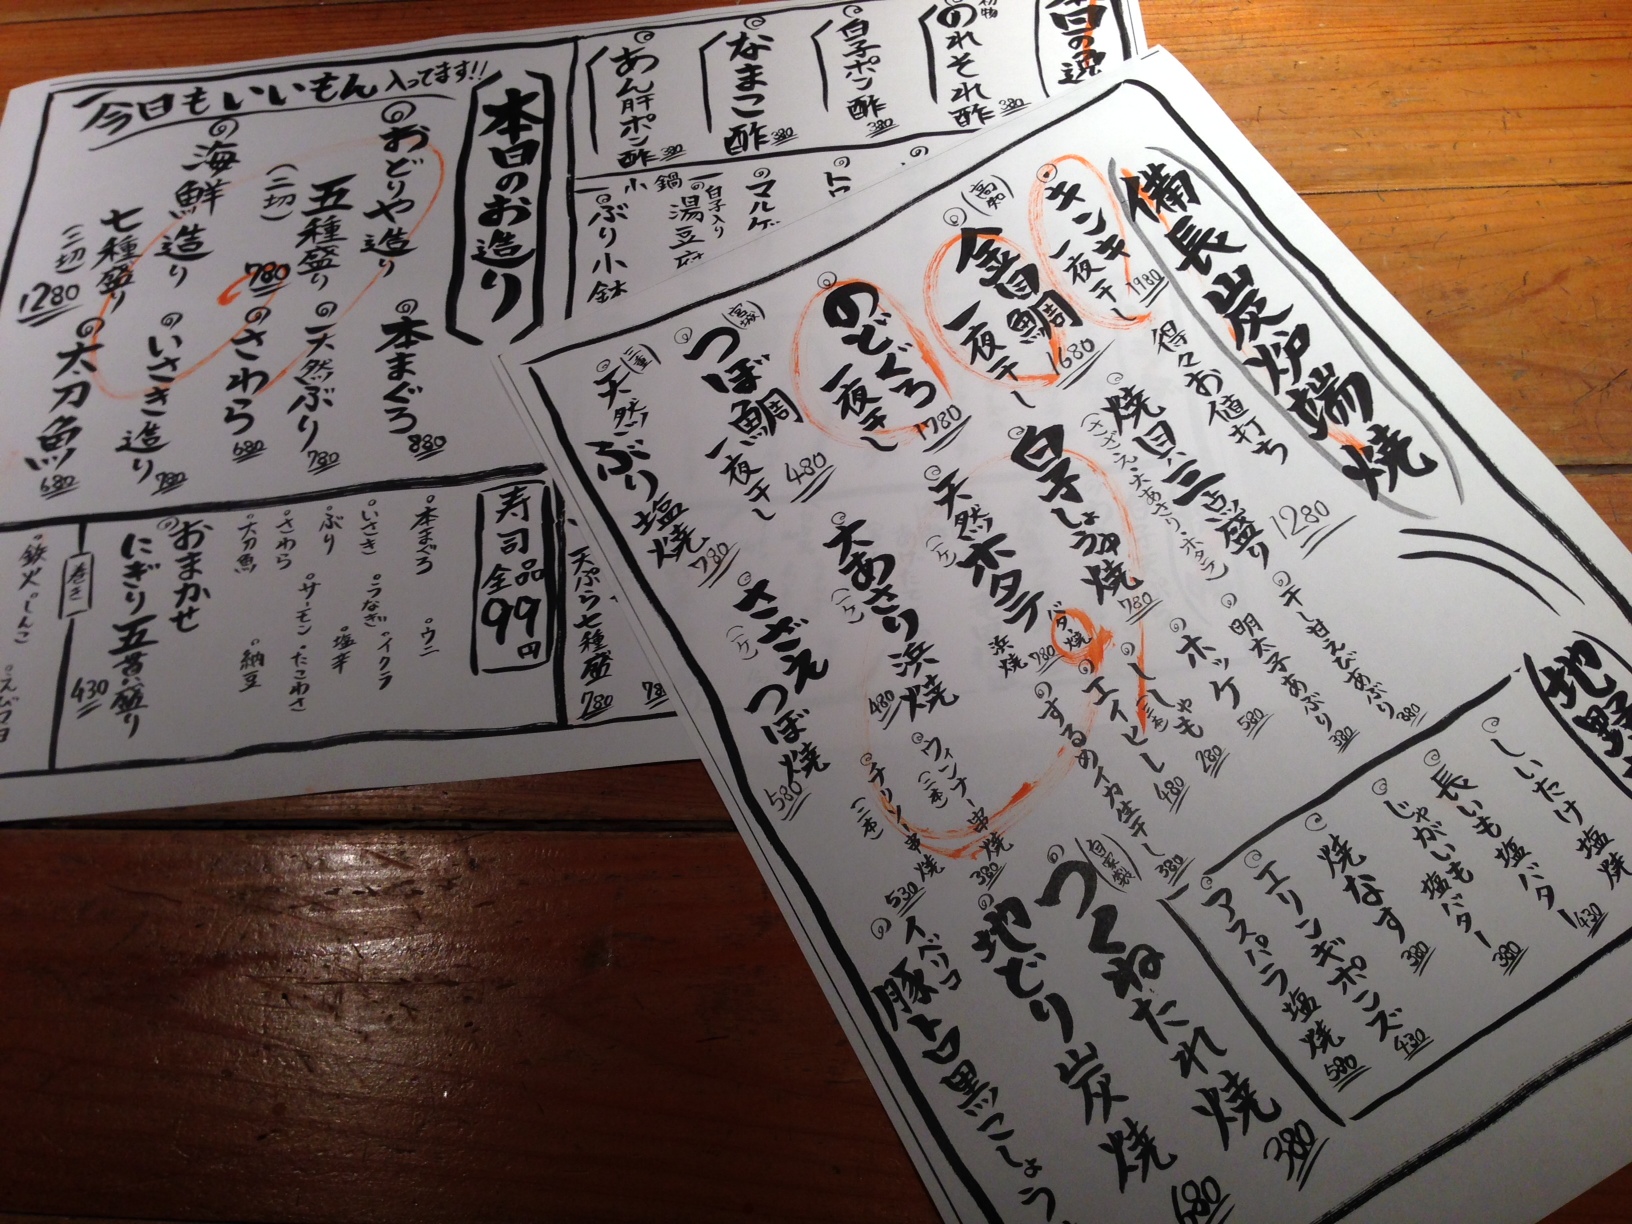 今日もいいもん入ってます!!
本日のお造り
おどりや造り
五種盛り
(二切)
780
海鮮造り
七種盛り
(二切)
1280
本まぐろ
880
天然ぶり
780
さわら
680
いさき造り
780
太刀魚
680
のれそれ酢
380
白子ポン酢
380
なまこ酢
380
あん肝ポン酢
380
マルゲ
白子入り
湯豆府
一ぶり小鉢
小鍋
寿司
全品
99円
本まぐろ
ウニ
いさき
うなぎ
イクラ
ぶり
サーモン
塩辛
さわら
たこわさ
太刀魚
納豆
おまかせ
にぎり五貫盛り
430
巻き
鉄火
しんこ
天ぷら七種盛
780
備長炭炉端焼
キンキ
一夜干し
1980
(高知)
金目鯛
一夜干し
1680
のどぐろ
一夜干し
1780
(宮城)
つぼ鯛
一夜干し
480
(三重)
天然ぶり塩焼
780
得々お値打ち
焼貝三点盛り
(さざえ・大あさり・ホタテ)
1280
白子しょうゆ焼
780
天然ホタテ
(一ケ)
バター焼
浜焼
780
大あさり浜焼
(一ケ)
480
さざえつぼ焼
(一ケ)
580
干し甘えびあぶり
380
明太子あぶり
380
ホッケ
580
ししゃも
(三本)
280
エイヒレ
480
するめイカ生干し
380
ウィンナー串焼
(二本)
380
チョリソー串焼
(二本)
530
(自家製)
つくねたれ焼
380
地どり炭焼
680
イベリコ
豚トロ黒こしょう
地野
しいたけ塩焼
430
長いも塩バター
380
じゃがいも塩バター
焼なす
380
エリンギポンズ
430
アスパラ塩焼
580